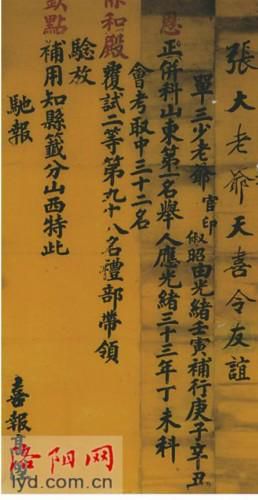 張大老爺天喜令友誼
單三少老爺官印俶昭由光緒壬寅補行庚子辛丑
恩
正併科山東第一名舉人應光緒三十三年丁未科
會考取中三十二名
保和殿
覆試二等第九十八名禮部帶領
驗放
欽點
補用知縣籤分山西特此
馳報
喜報高陞
洛阳网
lyd.com.cn